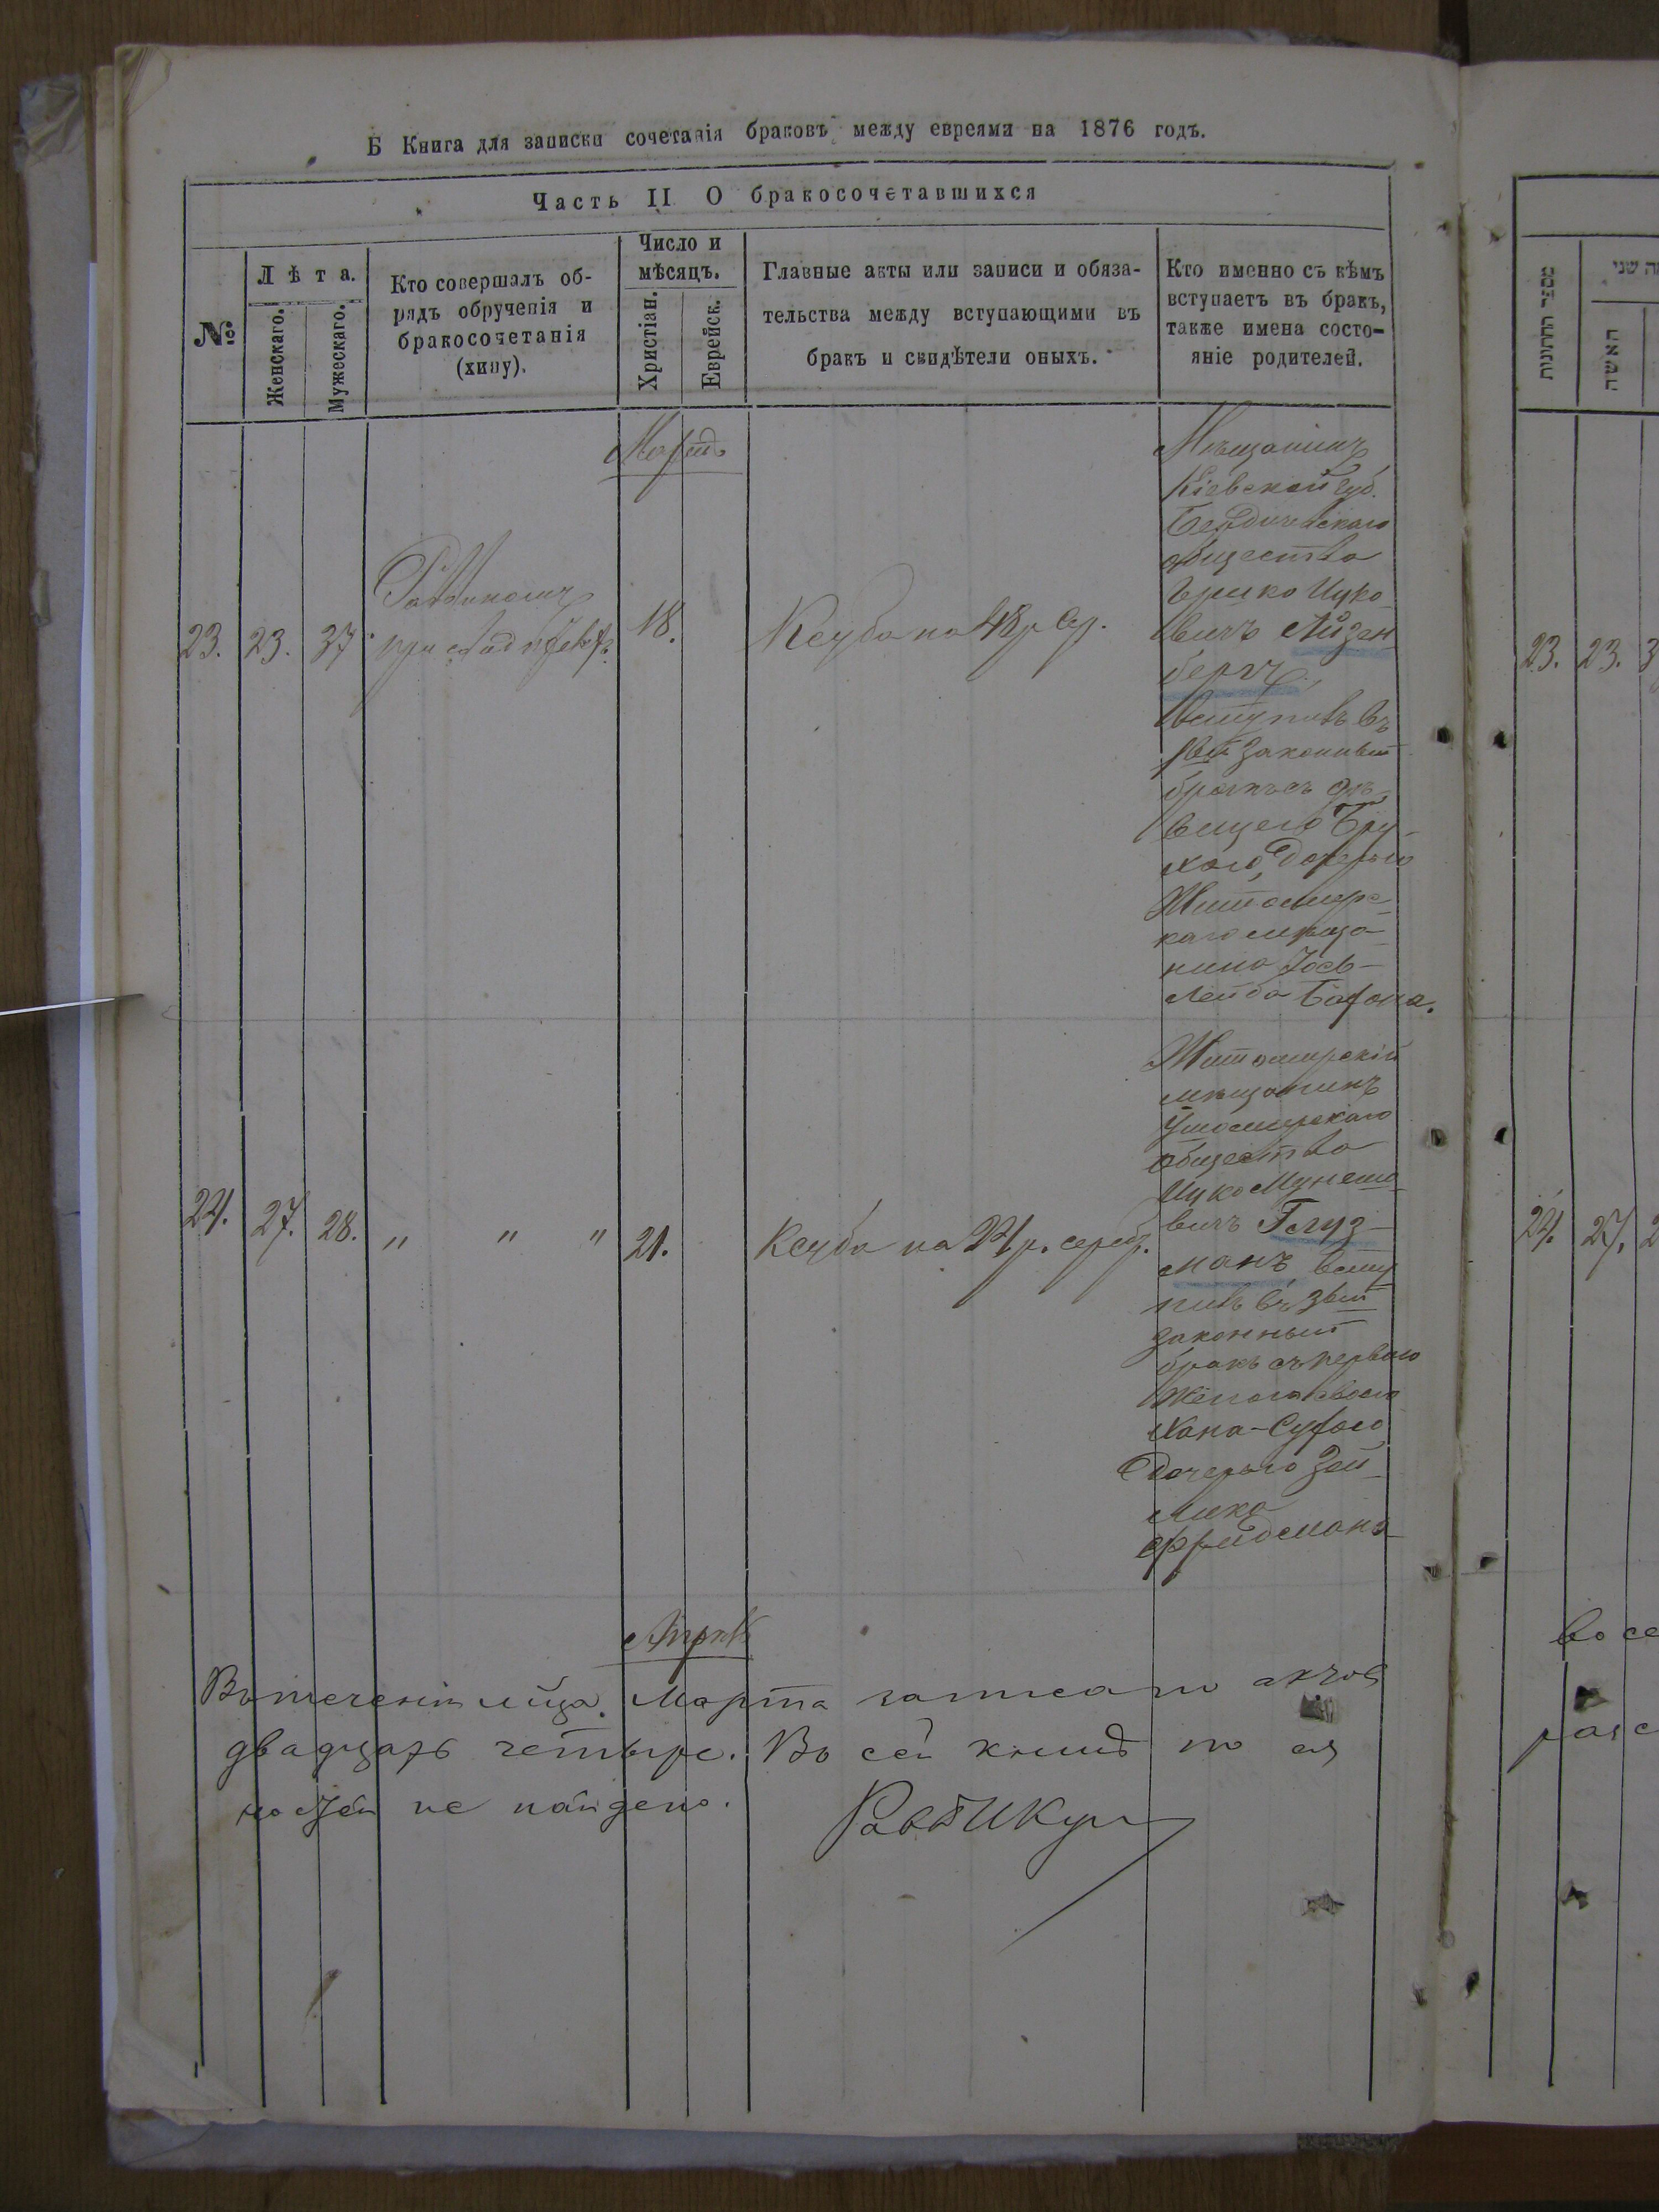 Б Книга для записки сочетанія браковъ между евреями на 1876 годъ.
Часть II О бракосочетавшихся
№
Лѣта.
Женскаго.
Мужескаго.
Кто совершалъ об-
рядъ обрученія и
бракосочетанія
(хипу).
Число и
мѣсяцъ.
Христіан.
Еврейск.
Главные акты или записи и обяза-
тельства между вступающими въ
бракъ и свидѣтели оныхъ.
Кто именно съ кѣмъ
вступаетъ въ бракъ,
также имена состо-
яніе родителей.
Мартъ
23. 23. 37
Раввиномъ
при
18.
Ксуба на 48 р сер.
Мѣщанинъ
Кіевской губ.
Бердичевскаго
общества
Ершко Ицко-
вичъ Айзен
бергъ,
вступивъ въ
1вый законный
бракъ съ дѣ-
вицею Бру-
хою, дочерью
Житомирс-
каго мѣща-
нина Іось-
Лейба Барона.
24. 27. 28. " " "
21.
Ксуба на 24 р. сереб.
Житомирскій
мѣщанинъ
Ушомирскаго
общества
Ицко Мунешо-
вичъ Глуз-
манъ всту
пивъ въ 3вый
законный
бракъ съ первою
женою своею
Хана-Сурою
дочерью Зей
лика
Фридмана
Апрѣль
Въ теченіи мѣца Марта записано актовъ
двадцать четыре. Въ сей книгѣ по
не найдено.
Раввинъ
שני
האשה
23. 23. 3
24. 27. 2